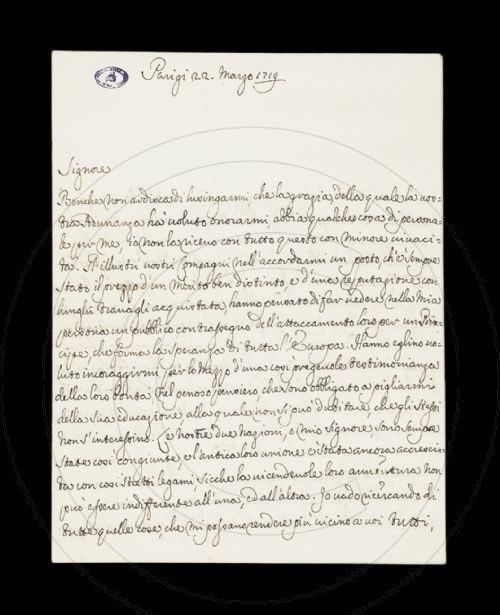 Parigi 22. Marzo 1719
Signore
Benche non ardisca di lusingarmi, che la grazia, della quale la vos=
tra Adunanza ha' voluto onorarmi, abbia qualche cosa di persona=
le per me, io non la ricevo con tutto questo con minore vivaci=
ta. Gl'illustri vostri Compagni nell'accordarmi un posto, ch'è sempre
stato il prezzo d'un merito ben distinto, e d'una reputazione con
lunghi travagli acquistata, hanno pensato di far vedere nella mia
persona un pubblico contrassegno dell'attaccamento loro per un Prin=
cipe, che forma la speranza di tutta l'Europa. Hanno eglino vo=
luto incoraggirmi per lo mezzo d'una così pregevole testimonianza
della loro bontà nel penoso pensiero che sono obbligato a pigliarmi
della sua educazione alla quale non si può dubitare, che gli stessi
non s'interessino. Le nostre due nazioni, o mio Signore, sono sempre
state così congiunte, e l'antica loro unione è stata ancora accresciu=
ta con così stretti legami sicche la vicendevole loro avventura non
può essere indifferente all'una, ed all'altra. Io vado ricercando di
tutte quelle cose, che mi possano rendere più vicino a voi tutti,